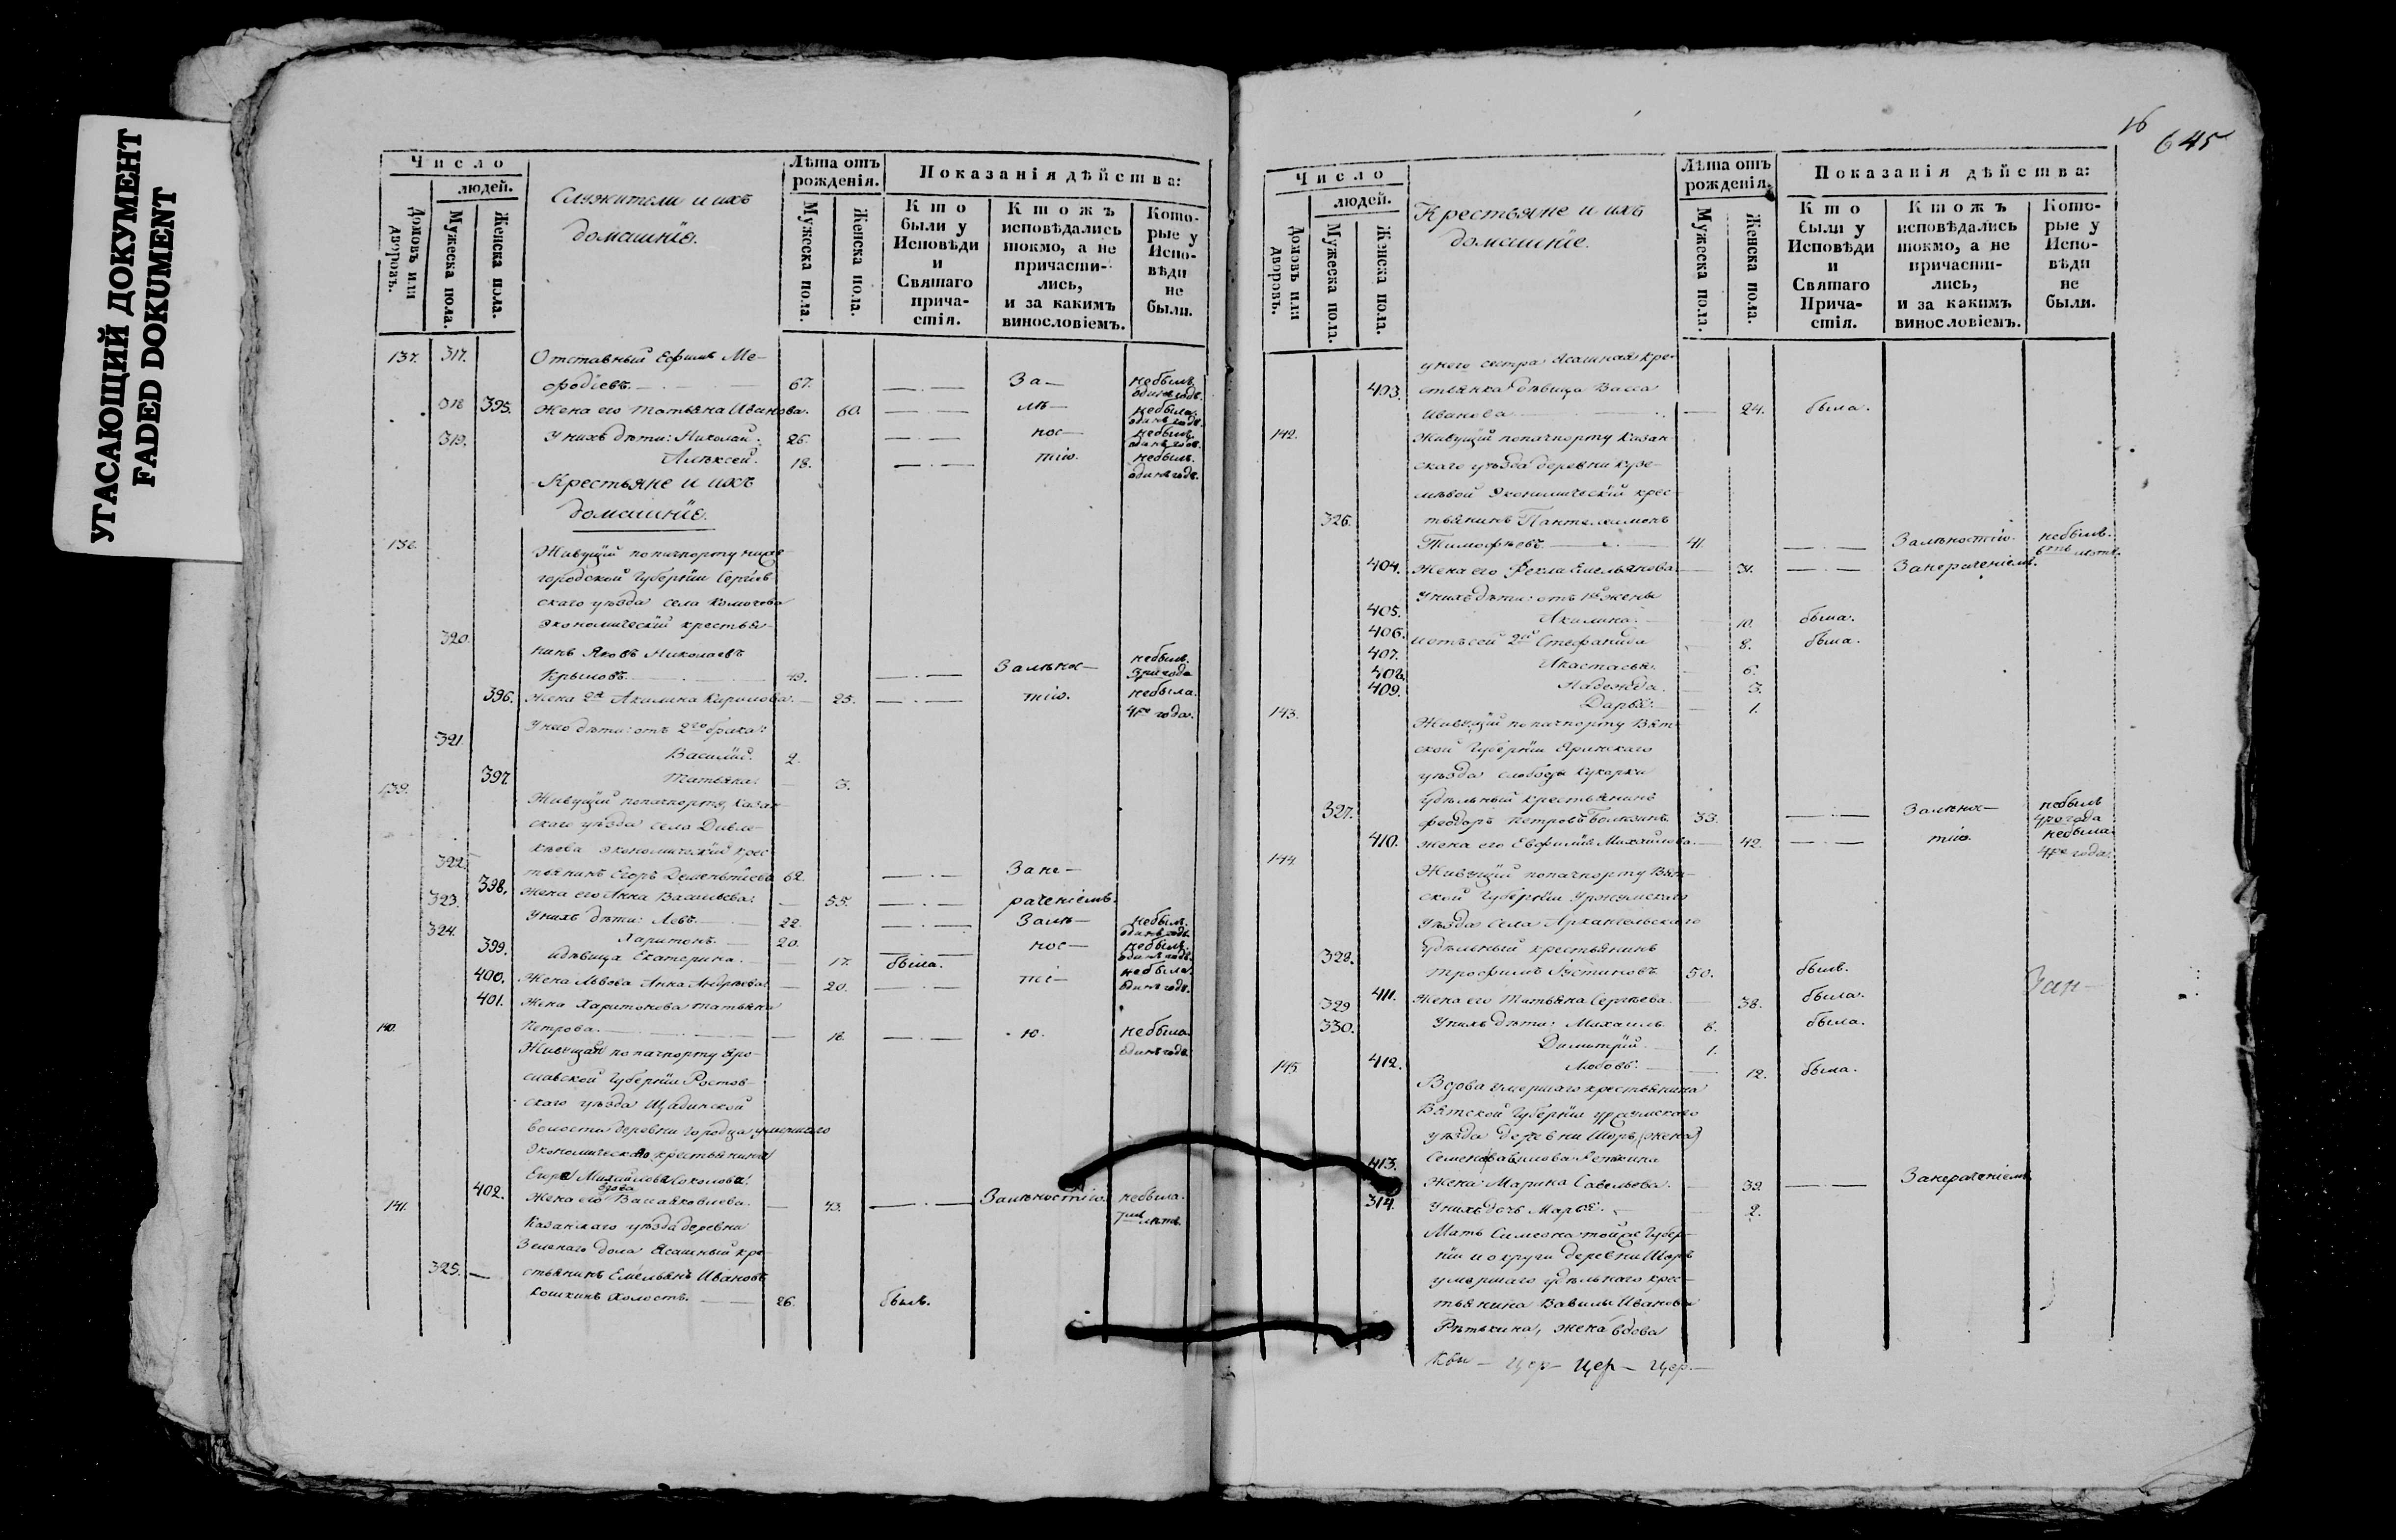 УГАСАЮЩИЙ ДОКУМЕНТ
FADED DOKUMENT
Число
людей.
Домовъ или дворовъ.
Мужеска пола.
Женска пола.
Служители и ихъ
домашніе.
Лѣта отъ рожденія.
Мужеска пола.
Женска пола.
Показанія дѣйства:
Кто были у Исповѣди и Святаго причастія.
Ктожъ исповѣдались токмо, а не причастились, и за какимъ винословіемъ.
Которые у Исповѣди не были.
137. 317. Отставный Ефимъ Ме-
фодіевъ. 67. За- небылъ одинъ годъ.
318 395. Жена его Татьяна Иванова. 60. лѣ- небыла. одинъ годъ.
319. Унихъ дѣти: Николай. 26. нос- небылъ. одинъ годъ.
Алексей. 18. тію. небылъ. одинъ годъ.
Крестьяне и ихъ
домашніе.
138. Живущій попачпорту ниже-
городской Губерніи Сергіев-
скаго уѣзда села
экономическій крестья-
320. нинъ Яковъ Николаевъ
Крыловъ. 49. Залѣнос- небылъ. три года
396. Жена 2я Акилина Кирилова. 25. тію. небыла. 4ре года.
Унего дѣти: отъ 2го брака:
321. Василій. 2.
397. Татьяна. 3.
139. Живущій попачпорту Казан-
скаго уѣзда села
экономическій крес-
322. тьянинъ Егоръ Дементьевъ 62. Зане-
398. Жена его Анна Васильева. 55. раченіемъ.
323. Унихъ дѣти: Левъ. 22. Залѣ- небылъ. одинъ годъ.
324. Харитонъ. 20. нос- небылъ. одинъ годъ.
399. идѣвица Екатерина. 17. была.
400. Жена Львова Анна Андреева. 20. ті- небыла. одинъ годъ.
401. Жена Харитонова Татьяна
Петрова. 18. ю. небыла. одинъ годъ.
140. Живущая попачпорту Яро-
славской Губерніи Ростов-
скаго уѣзда Щадинской
волости деревни Городца умершаго
Экономическаго крестьянина
Егора Михайлова Соколова.
402. Жена его вдова Васса Яковлева. 43. Залѣностію. небыла. 7мь лѣтъ.
141. Казанскаго уѣзда деревни
Зеленаго дола Ясашный кре-
325. стьянинъ Емельянъ Ивановъ
Кошкинъ Холостъ. 26. былъ.
16
645
Число
людей.
Домовъ или дворовъ.
Мужеска пола.
Женска пола.
Крестьяне и ихъ
домашніе.
Лѣта отъ рожденія.
Мужеска пола.
Женска пола.
Показанія дѣйства:
Кто были у Исповѣди и Святаго Причастія.
Ктожъ исповѣдались токмо, а не причастились, и за какимъ винословіемъ.
Которые у Исповѣди не были.
унего сестра Ясашная кре-
403. стьянка дѣвица Васса
Иванова 24. была.
142. Живущій попачпорту Казан-
скаго уѣзда деревни Кузе-
мѣвой Экономическій крес-
326. тьянинъ Пантелеимонъ
Тимофѣевъ. 41. Залѣностію. небылъ. 6ть лѣтъ.
404. Жена его Фекла Емельянова 31. Занераченіемъ.
Унихъ дѣти: отъ 1й жены
405. Акилина. 10. была.
406. иотъсей 2й Стефанида 8. была.
407. Анастасья. 6.
408. Надежда. 3.
409. Дарья. 1.
143. Живущій попачпорту Вят-
ской Губерніи Яранскаго
уѣзда слободы Кукарки
Удѣльный крестьянинъ
327. Феодоръ Петровъ 33. Залѣнос- небылъ 4ре года
410. Жена его Евфимія Михаилова. 42. тію. небыла. 4ре года.
144. Живущій попачпорту Вят-
ской Губерніи Уржумскаго
Уѣзда Села Архангельскаго
Удѣльный крестьянинъ
328. Трофимъ Устиновъ 50. былъ.
411. Жена его Татьяна Сергѣева. 38. была.
329 Унихъ дѣти: Михаилъ. 8. была.
330. Димитрій. 1.
412. Любовь. 12. была.
145 Вдова умершаго крестьянина
Вятской Губерніи уржумскаго
уѣзда деревни Шоръ (жена)
Семена Вавилова Репкина
413. Жена: Марина Савельева. 39. Занераченіемъ
314. Унихъ дочь Марья. 2.
Мать Симеона тойже Губер-
ніи и округи деревни Шоръ
умершаго удѣльнаго крес-
тьянина Вавилы Иванова
Рѣпкина, жена вдова